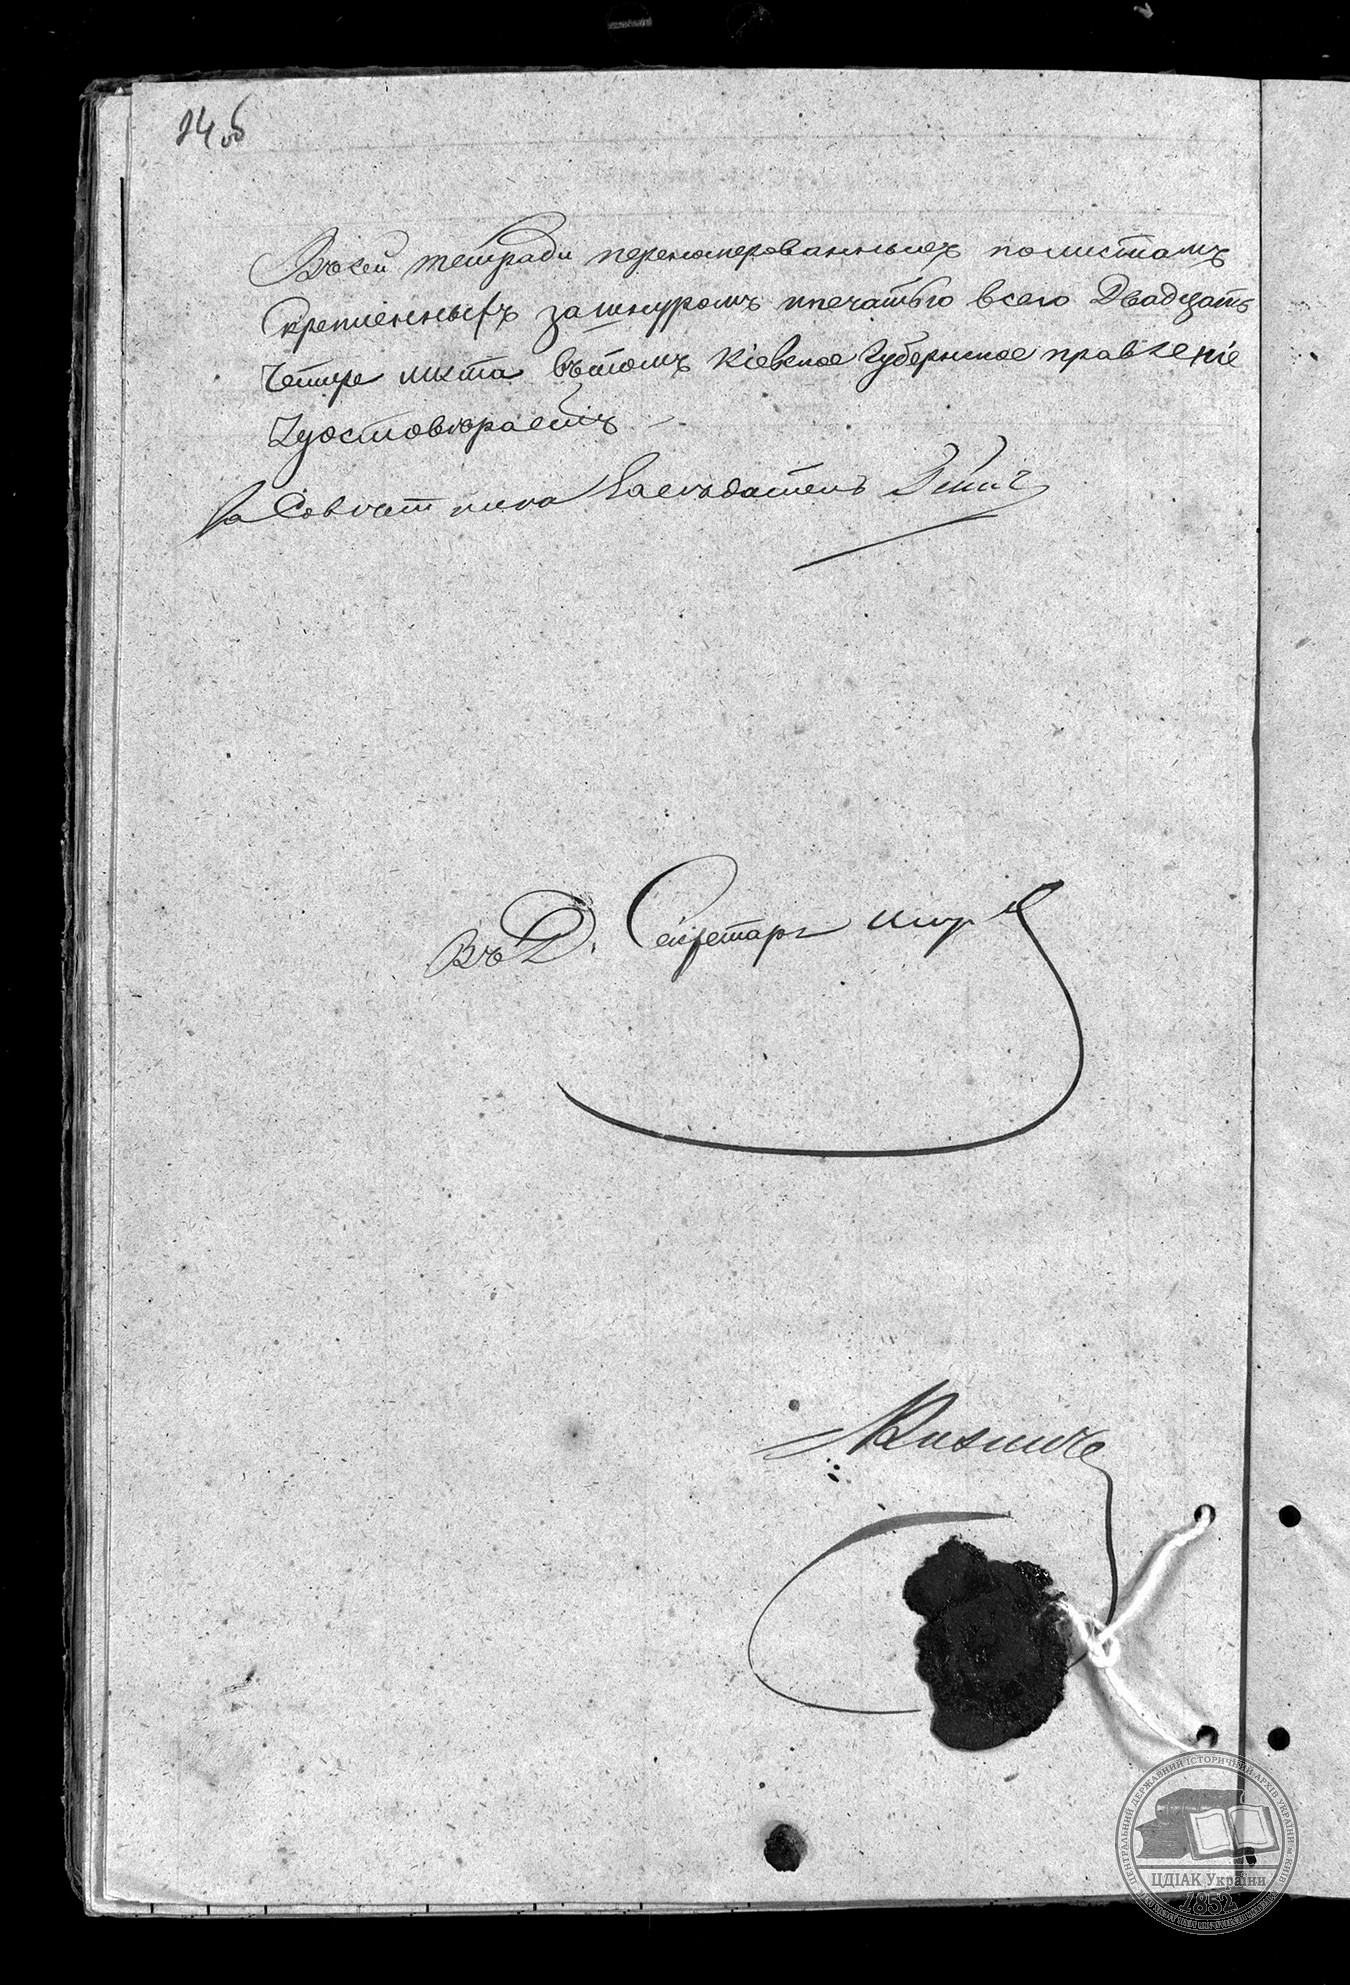 24 об
Въ сей тетради перенумерованныхъ по листамъ
скрепленныхъ за шнуромъ и печатью всего Двадцать
Четыре листа въ томъ Кіевское Губернское правленіе
Удостовѣраетъ
За Советника
Въ Д. Секретарь
ЦЕНТРАЛЬНИЙ ДЕРЖАВНИЙ ІСТОРИЧНИЙ АРХІВ УКРАЇНИ м. КИЇВ
ЦДІАК України
1852